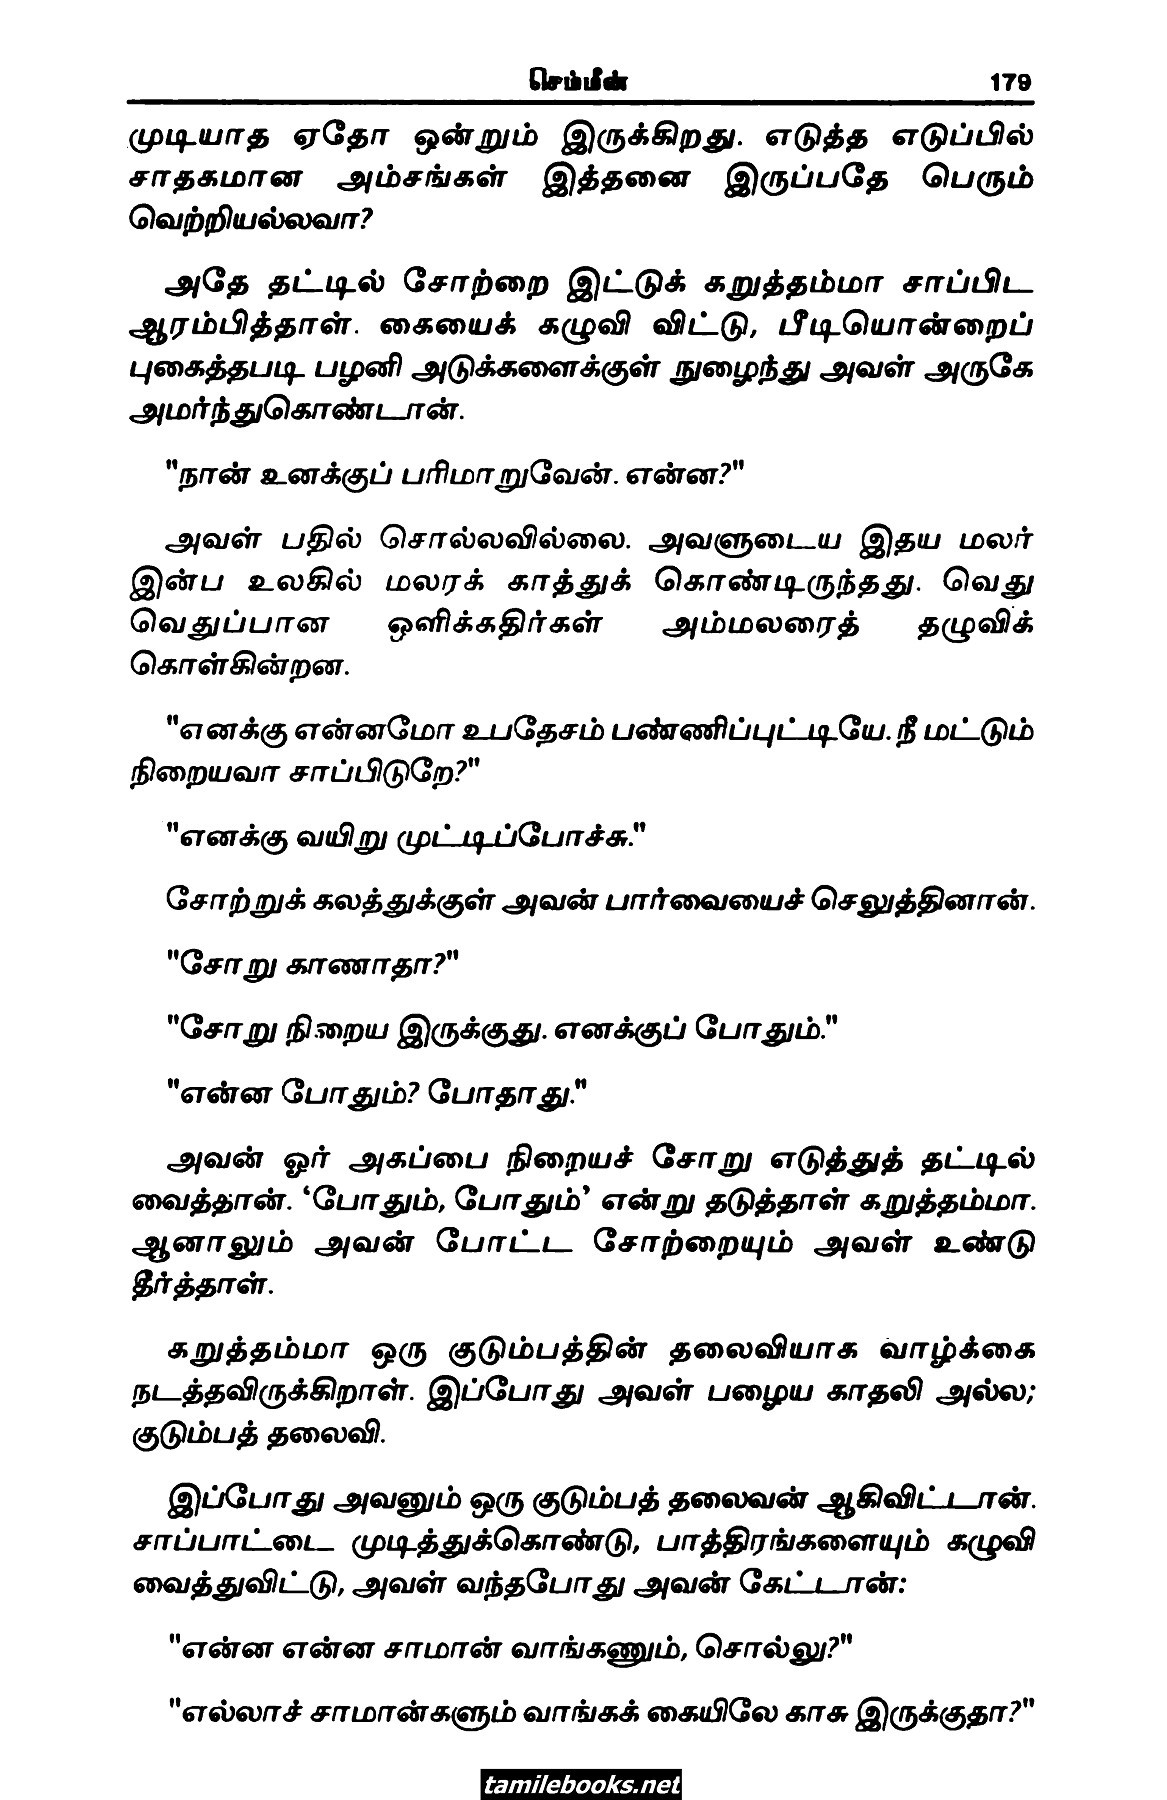 செம்மீன் 179
முடியாத ஏதோ ஒன்றும் இருக்கிறது. எடுத்த எடுப்பில்
சாதகமான அம்சங்கள் இத்தனை இருப்பதே பெரும்
வெற்றியல்லவா?
அதே தட்டில் சோற்றை இட்டுக் கறுத்தம்மா சாப்பிட
ஆரம்பித்தாள். கையைக் கழுவி விட்டு, பீடியொன்றைப்
புகைத்தபடி பழனி அடுக்களைக்குள் நுழைந்து அவள் அருகே
அமர்ந்துகொண்டான்.
"நான் உனக்குப் பரிமாறுவேன். என்ன?"
அவள் பதில் சொல்லவில்லை. அவளுடைய இதய மலர்
இன்ப உலகில் மலரக் காத்துக் கொண்டிருந்தது. வெது
வெதுப்பான ஒளிக்கதிர்கள் அம்மலரைத் தழுவிக்
கொள்கின்றன.
"எனக்கு என்னமோ உபதேசம் பண்ணிப்புட்டியே. நீ மட்டும்
நிறையவா சாப்பிடுறே?"
"எனக்கு வயிறு முட்டிப்போச்சு."
சோற்றுக் கலத்துக்குள் அவன் பார்வையைச் செலுத்தினான்.
"சோறு காணாதா?"
"சோறு நிறைய இருக்குது. எனக்குப் போதும்."
"என்ன போதும்? போதாது."
அவன் ஓர் அகப்பை நிறையச் சோறு எடுத்துத் தட்டில்
வைத்தான். ‘போதும், போதும்’ என்று தடுத்தாள் கறுத்தம்மா.
ஆனாலும் அவன் போட்ட சோற்றையும் அவள் உண்டு
தீர்த்தாள்.
கறுத்தம்மா ஒரு குடும்பத்தின் தலைவியாக வாழ்க்கை
நடத்தவிருக்கிறாள். இப்போது அவள் பழைய காதலி அல்ல;
குடும்பத் தலைவி.
இப்போது அவனும் ஒரு குடும்பத் தலைவன் ஆகிவிட்டான்.
சாப்பாட்டை முடித்துக்கொண்டு, பாத்திரங்களையும் கழுவி
வைத்துவிட்டு, அவள் வந்தபோது அவன் கேட்டான்:
"என்ன என்ன சாமான் வாங்கணும், சொல்லு?"
"எல்லாச் சாமான்களும் வாங்கக் கையிலே காசு இருக்குதா?"
tamilebooks.net